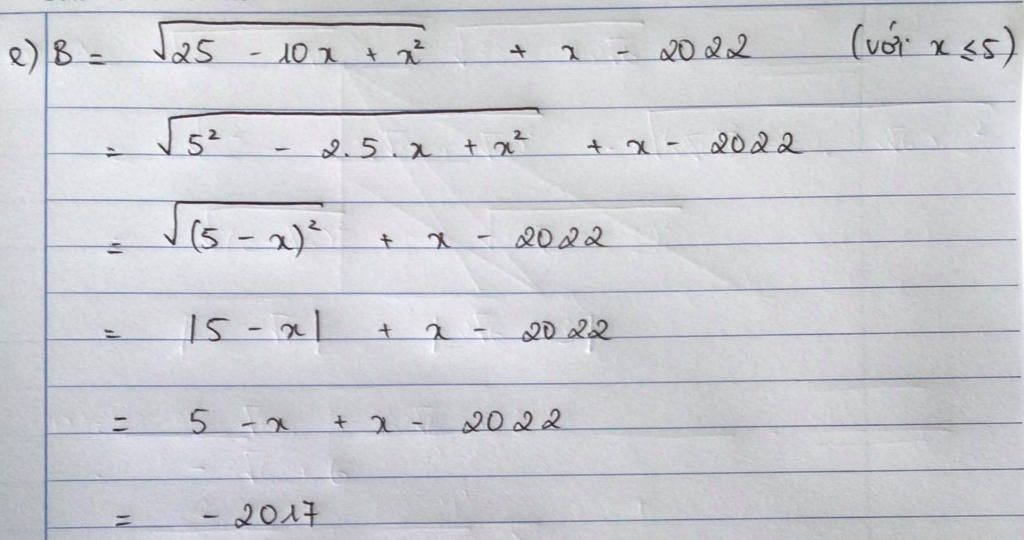 e) B = √(25 - 10x + x²) + x - 2022 (với x ≤ 5)
= √(5² - 2.5.x + x²) + x - 2022
= √((5 - x)²) + x - 2022
= |5 - x| + x - 2022
= 5 - x + x - 2022
= - 2017